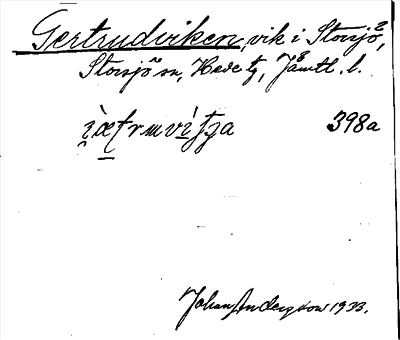 Gertrudviken, vik i Storsjö,
Storsjö sn, Hede tg, Jämtl. l.
398a
Johan Anderzson 1933.